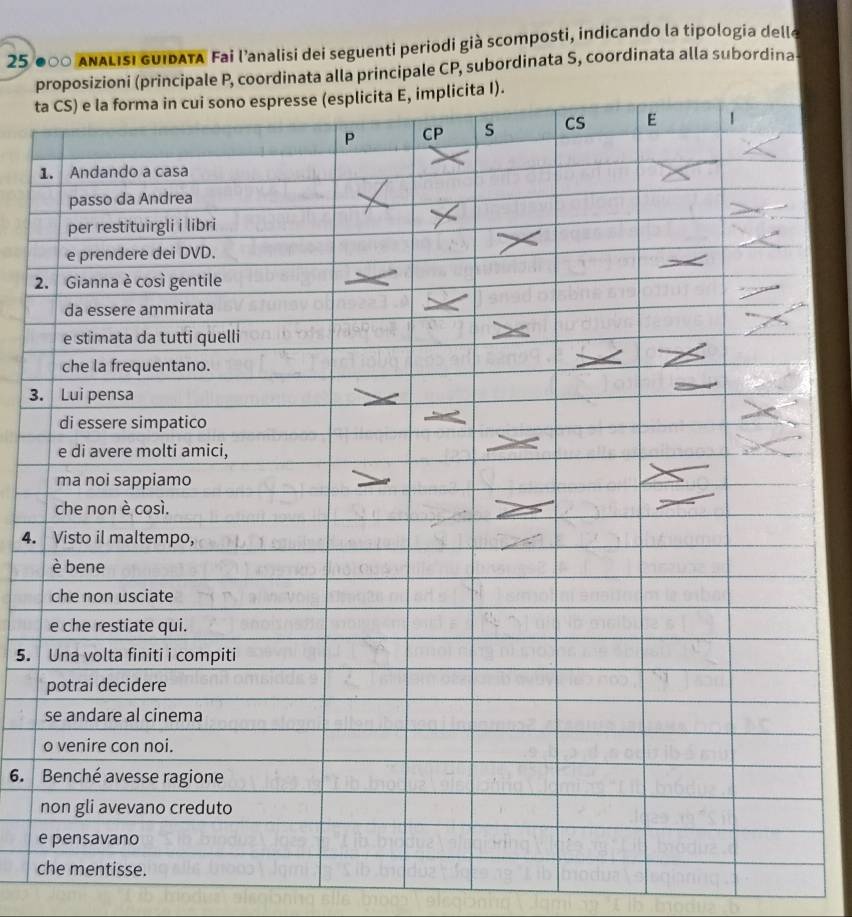 25 ●○○ ANALISI GUIDATA Fai l'analisi dei seguenti periodi già scomposti, indicando la tipologia delle
proposizioni (principale P, coordinata alla principale CP, subordinata S, coordinata alla subordina-
ta CS) e la forma in cui sono espresse (esplicita E, implicita I).
P CP S CS E I
1. Andando a casa
passo da Andrea
per restituirgli i libri
e prendere dei DVD.
2. Gianna è così gentile
da essere ammirata
e stimata da tutti quelli
che la frequentano.
3. Lui pensa
di essere simpatico
e di avere molti amici,
ma noi sappiamo
che non è così.
4. Visto il maltempo,
è bene
che non usciate
e che restiate qui.
5. Una volta finiti i compiti
potrai decidere
se andare al cinema
o venire con noi.
6. Benché avesse ragione
non gli avevano creduto
e pensavano
che mentisse.